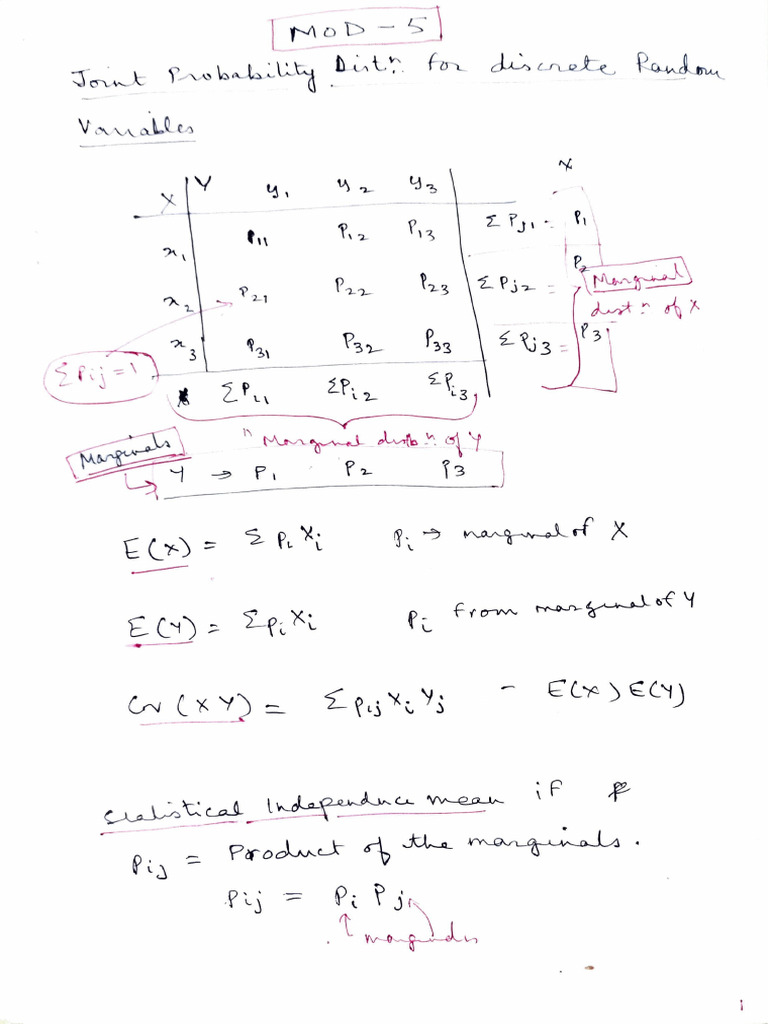 MOD - 5
Joint Probability Distⁿ for discrete Random
Variables
X
X Y y₁ y₂ y₃
x₁ P₁₁ P₁₂ P₁₃ Σ Pj₁ = P₁
x₂ P₂₁ P₂₂ P₂₃ Σ Pj₂ = P₂
Marginal
distⁿ of X
x₃ P₃₁ P₃₂ P₃₃ Σ Pj₃ = P₃
Σ Pij = 1
ΣPi₁ ΣPi₂ ΣPi₃
Marginal distbⁿ of Y
Marginals
Y → P₁ P₂ P₃
E(X) = Σ Pi Xi Pi → marginal of X
E(Y) = ΣPi Xi Pi from marginal of Y
Cov (XY) = Σ Pij Xi Yj - E(X) E(Y)
Statistical Independence mean if
Pij = Product of the marginals.
Pij = Pi Pj
1